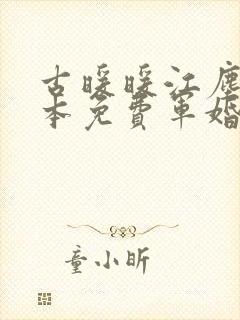 古暖暖江尘
本免费军婚
童小昕